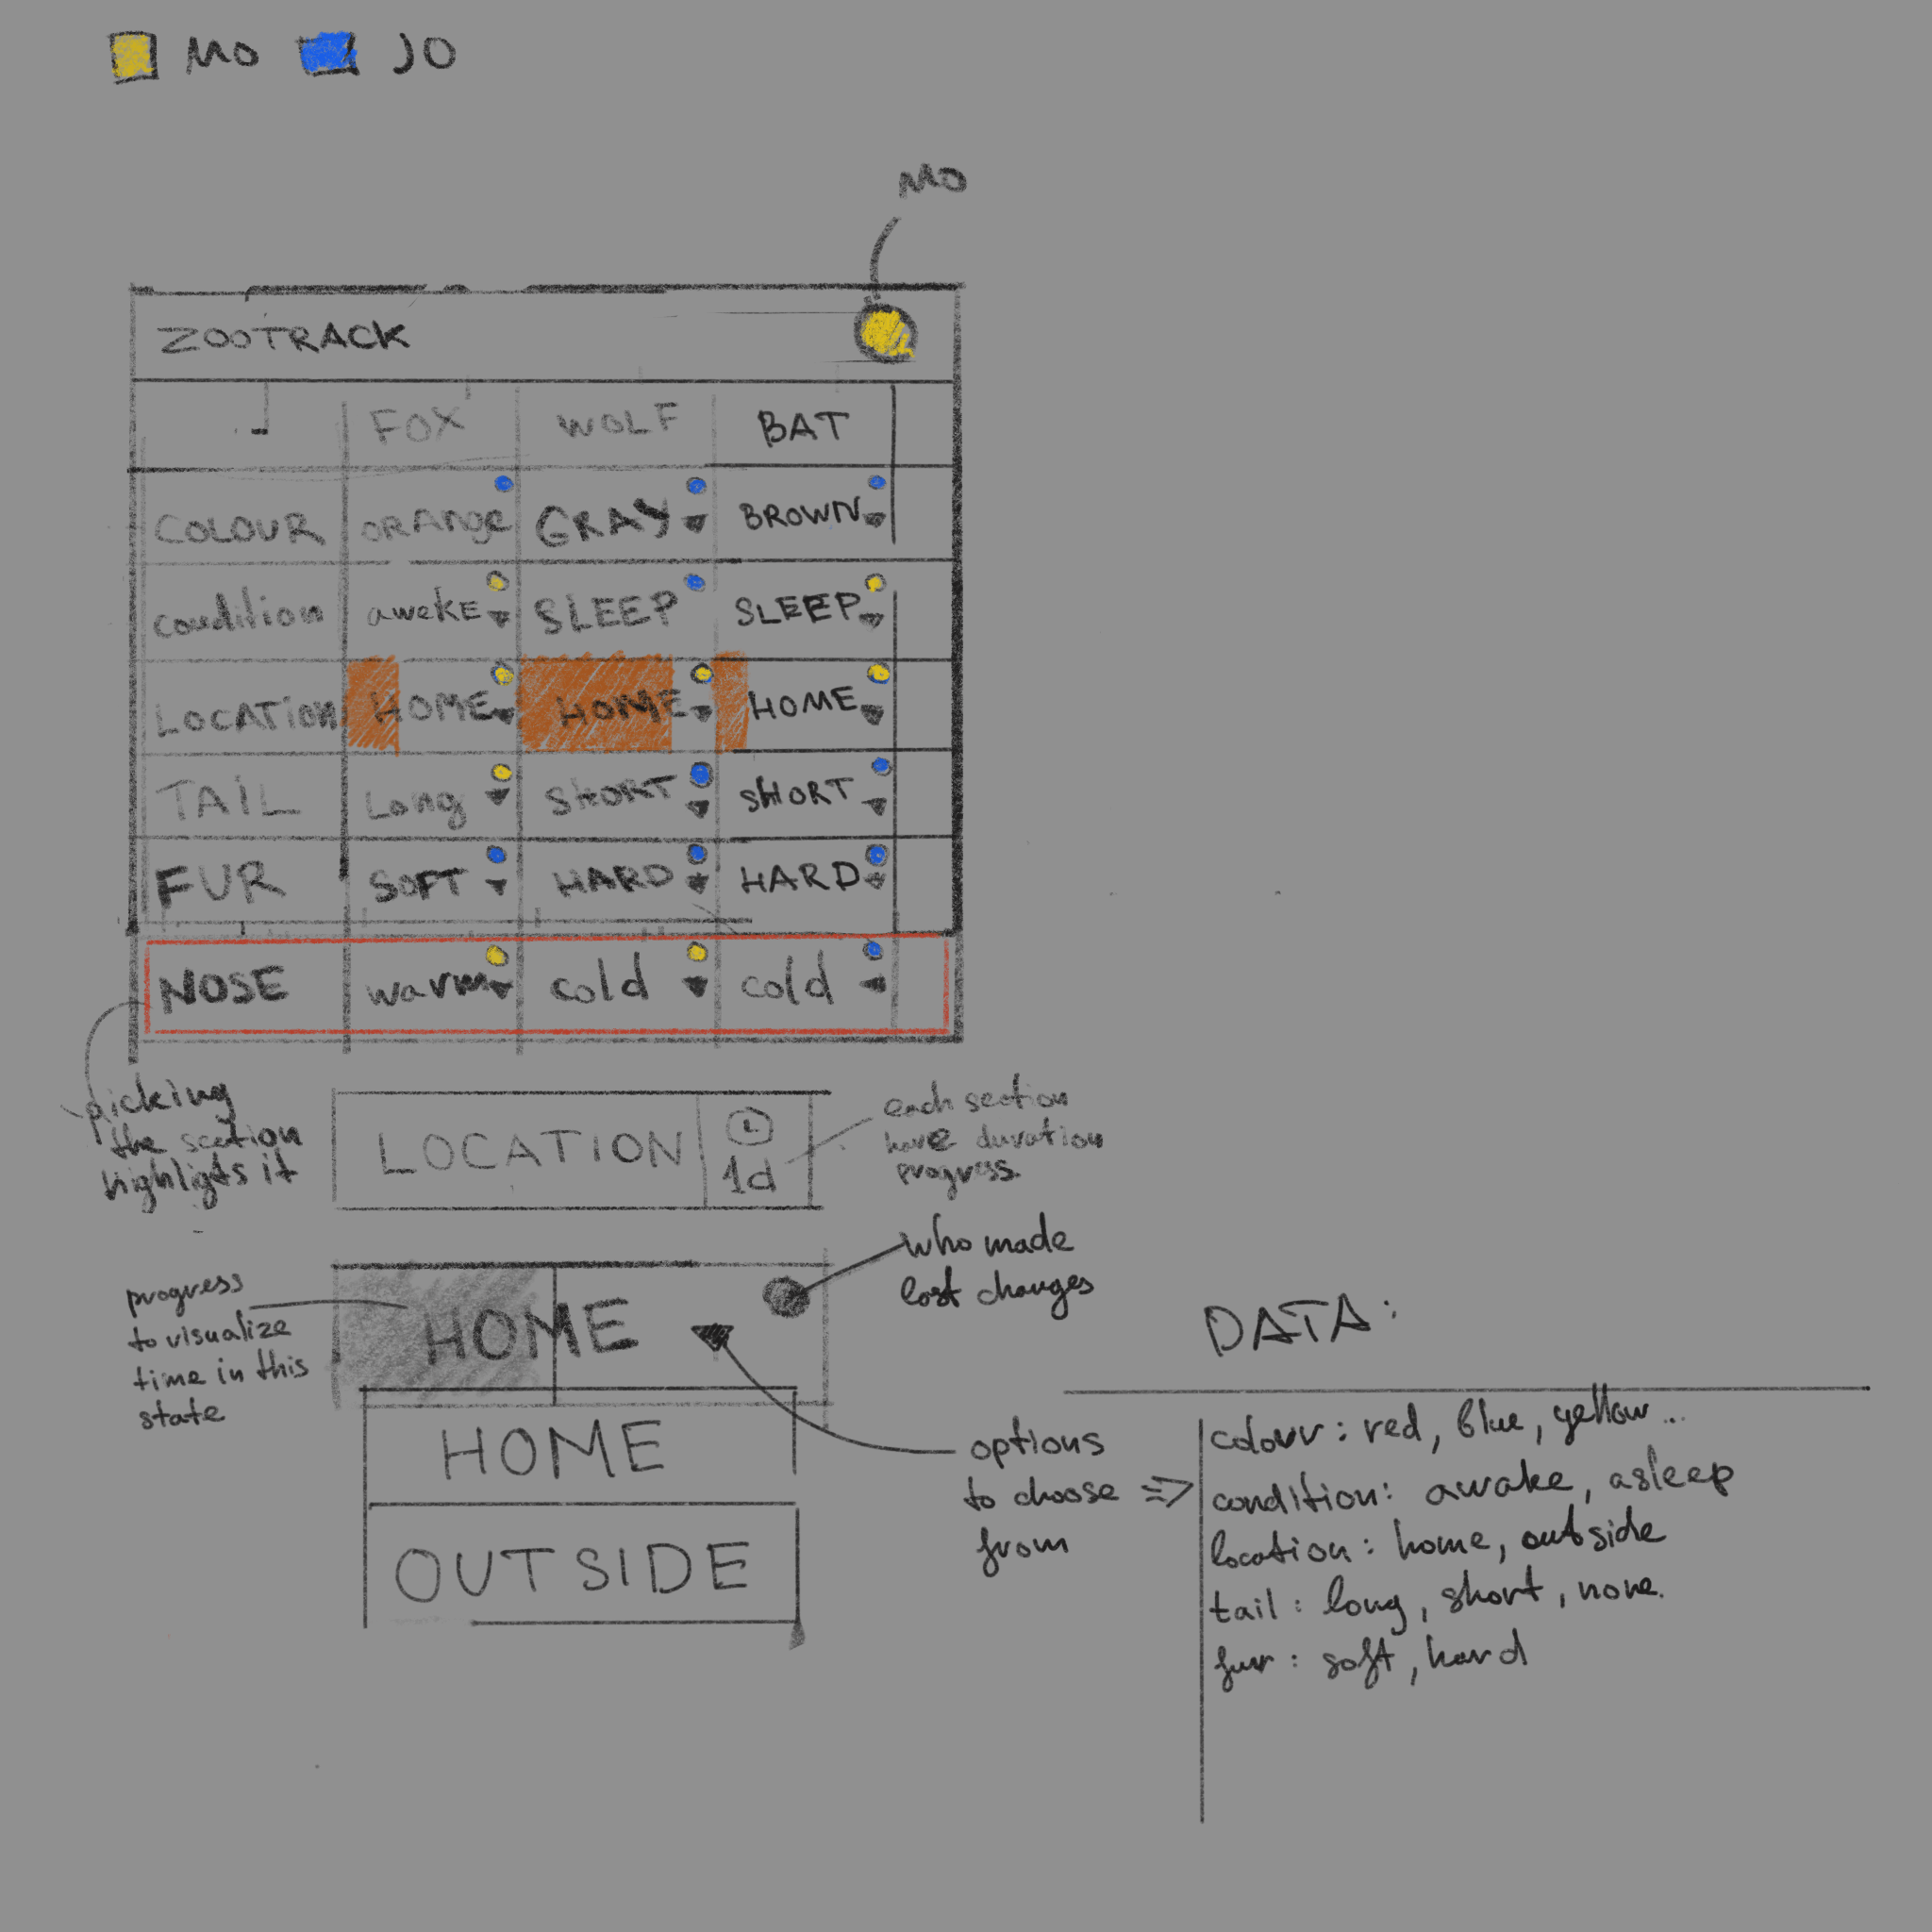 MO JO
MO
ZOOTRACK
FOX WOLF BAT
COLOUR ORANGE GRAY BROWN
condition aweKE SLEEP SLEEP
LOCATION HOME HOME HOME
TAIL Long SHORT SHORT
FUR SOFT HARD HARD
NOSE warm cold cold
picking
the section
highligts it
LOCATION
1d
each section
have duration
progress
progress
to visualize
time in this
state
HOME
who made
last changes
HOME
OUTSIDE
options
to choose
from
DATA:
colour: red, blue, yellow...
condition: awake, asleep
location: home, outside
tail: long, short, none.
fur: soft, hard